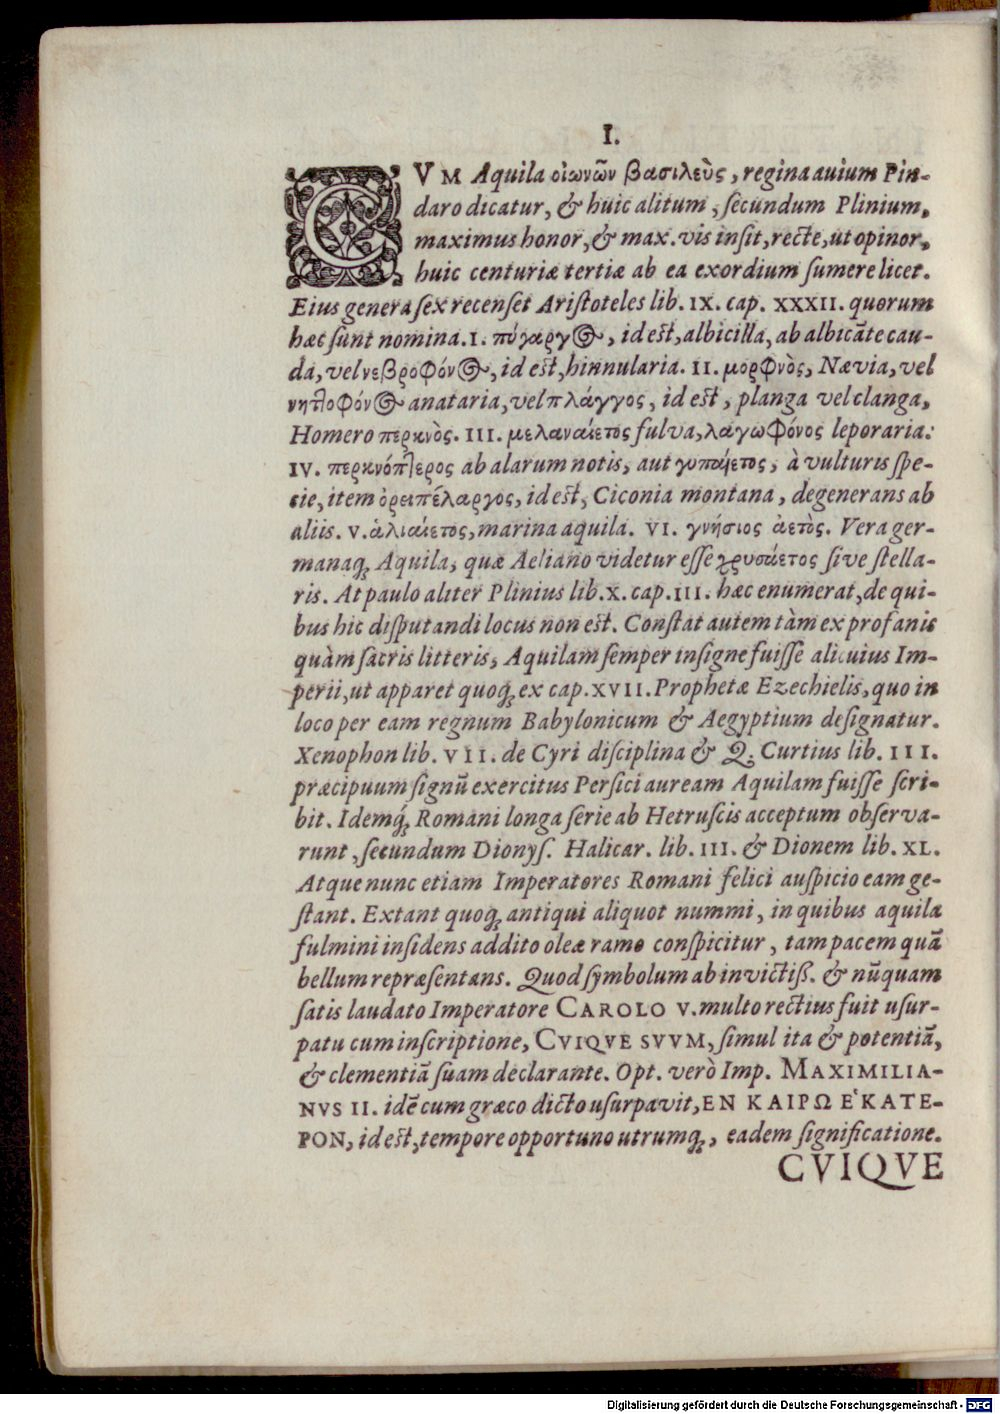 I.
CVM Aquila οἰωνῶν βασιλεὺς, regina avium Pin-
daro dicatur, & huic alitum, secundum Plinium,
maximus honor, & max. vis insit, recte, ut opinor,
huic centuriæ tertiæ ab ea exordium sumere licet.
Eius genera sex recenset Aristoteles lib. IX. cap. XXXII. quorum
hæc sunt nomina. I. πύγαργος, id est, albicilla, ab albicāte cau-
da, vel νεβροφόνος, id est, hinnularia. II. μορφνὸς, Nævia, vel
νητλοφόνος anataria, vel πλάγγος, id est, planga vel clanga,
Homero περκνὸς. III. μελαναίετος fulva, λαγωφόνος leporaria:
IV. περκνόπλερος ab alarum notis, aut γυπαίετος, à vulturis spe-
cie, item ὀρειπέλαργος, id est, Ciconia montana, degenerans ab
aliis. V. ἁλιαίετος, marina aquila. VI. γνήσιος ἀετὸς. Vera ger-
manaq; Aquila, quæ Aeliano videtur esse χρυσάετος sive stella-
ris. At paulo aliter Plinius lib. X. cap. III. hæc enumerat, de qui-
bus hic disputandi locus non est. Constat autem tàm ex profanis
quàm sacris litteris, Aquilam semper insigne fuisse alicuius Im-
perii, ut apparet quoq; ex cap. XVII. Prophetæ Ezechielis, quo in
loco per eam regnum Babylonicum & Aegyptium designatur.
Xenophon lib. VII. de Cyri disciplina & Q. Curtius lib. III.
præcipuum signū exercitus Persici auream Aquilam fuisse scri-
bit. Idemq; Romani longa serie ab Hetruscis acceptum observa-
runt, secundum Dionys. Halicar. lib. III. & Dionem lib. XL.
Atque nunc etiam Imperatores Romani felici auspicio eam ge-
stant. Extant quoq; antiqui aliquot nummi, in quibus aquila
fulmini insidens addito oleæ ramo conspicitur, tam pacem quā
bellum repræsentans. Quod symbolum ab invictiß. & nūquam
satis laudato Imperatore CAROLO V. multo rectius fuit usur-
patu cum inscriptione, CVIQVE SVVM, simul ita & potentiā,
& clementiā suam declarante. Opt. verò Imp. MAXIMILIA-
NVS II. idē cum græco dicto usurpavit, ΕΝ ΚΑΙΡΩ ΕΚΑΤΕ-
ΡΟΝ, id est, tempore opportuno utrumq;, eadem significatione.
CVIQVE
Digitalisierung gefördert durch die Deutsche Forschungsgemeinschaft - DFG